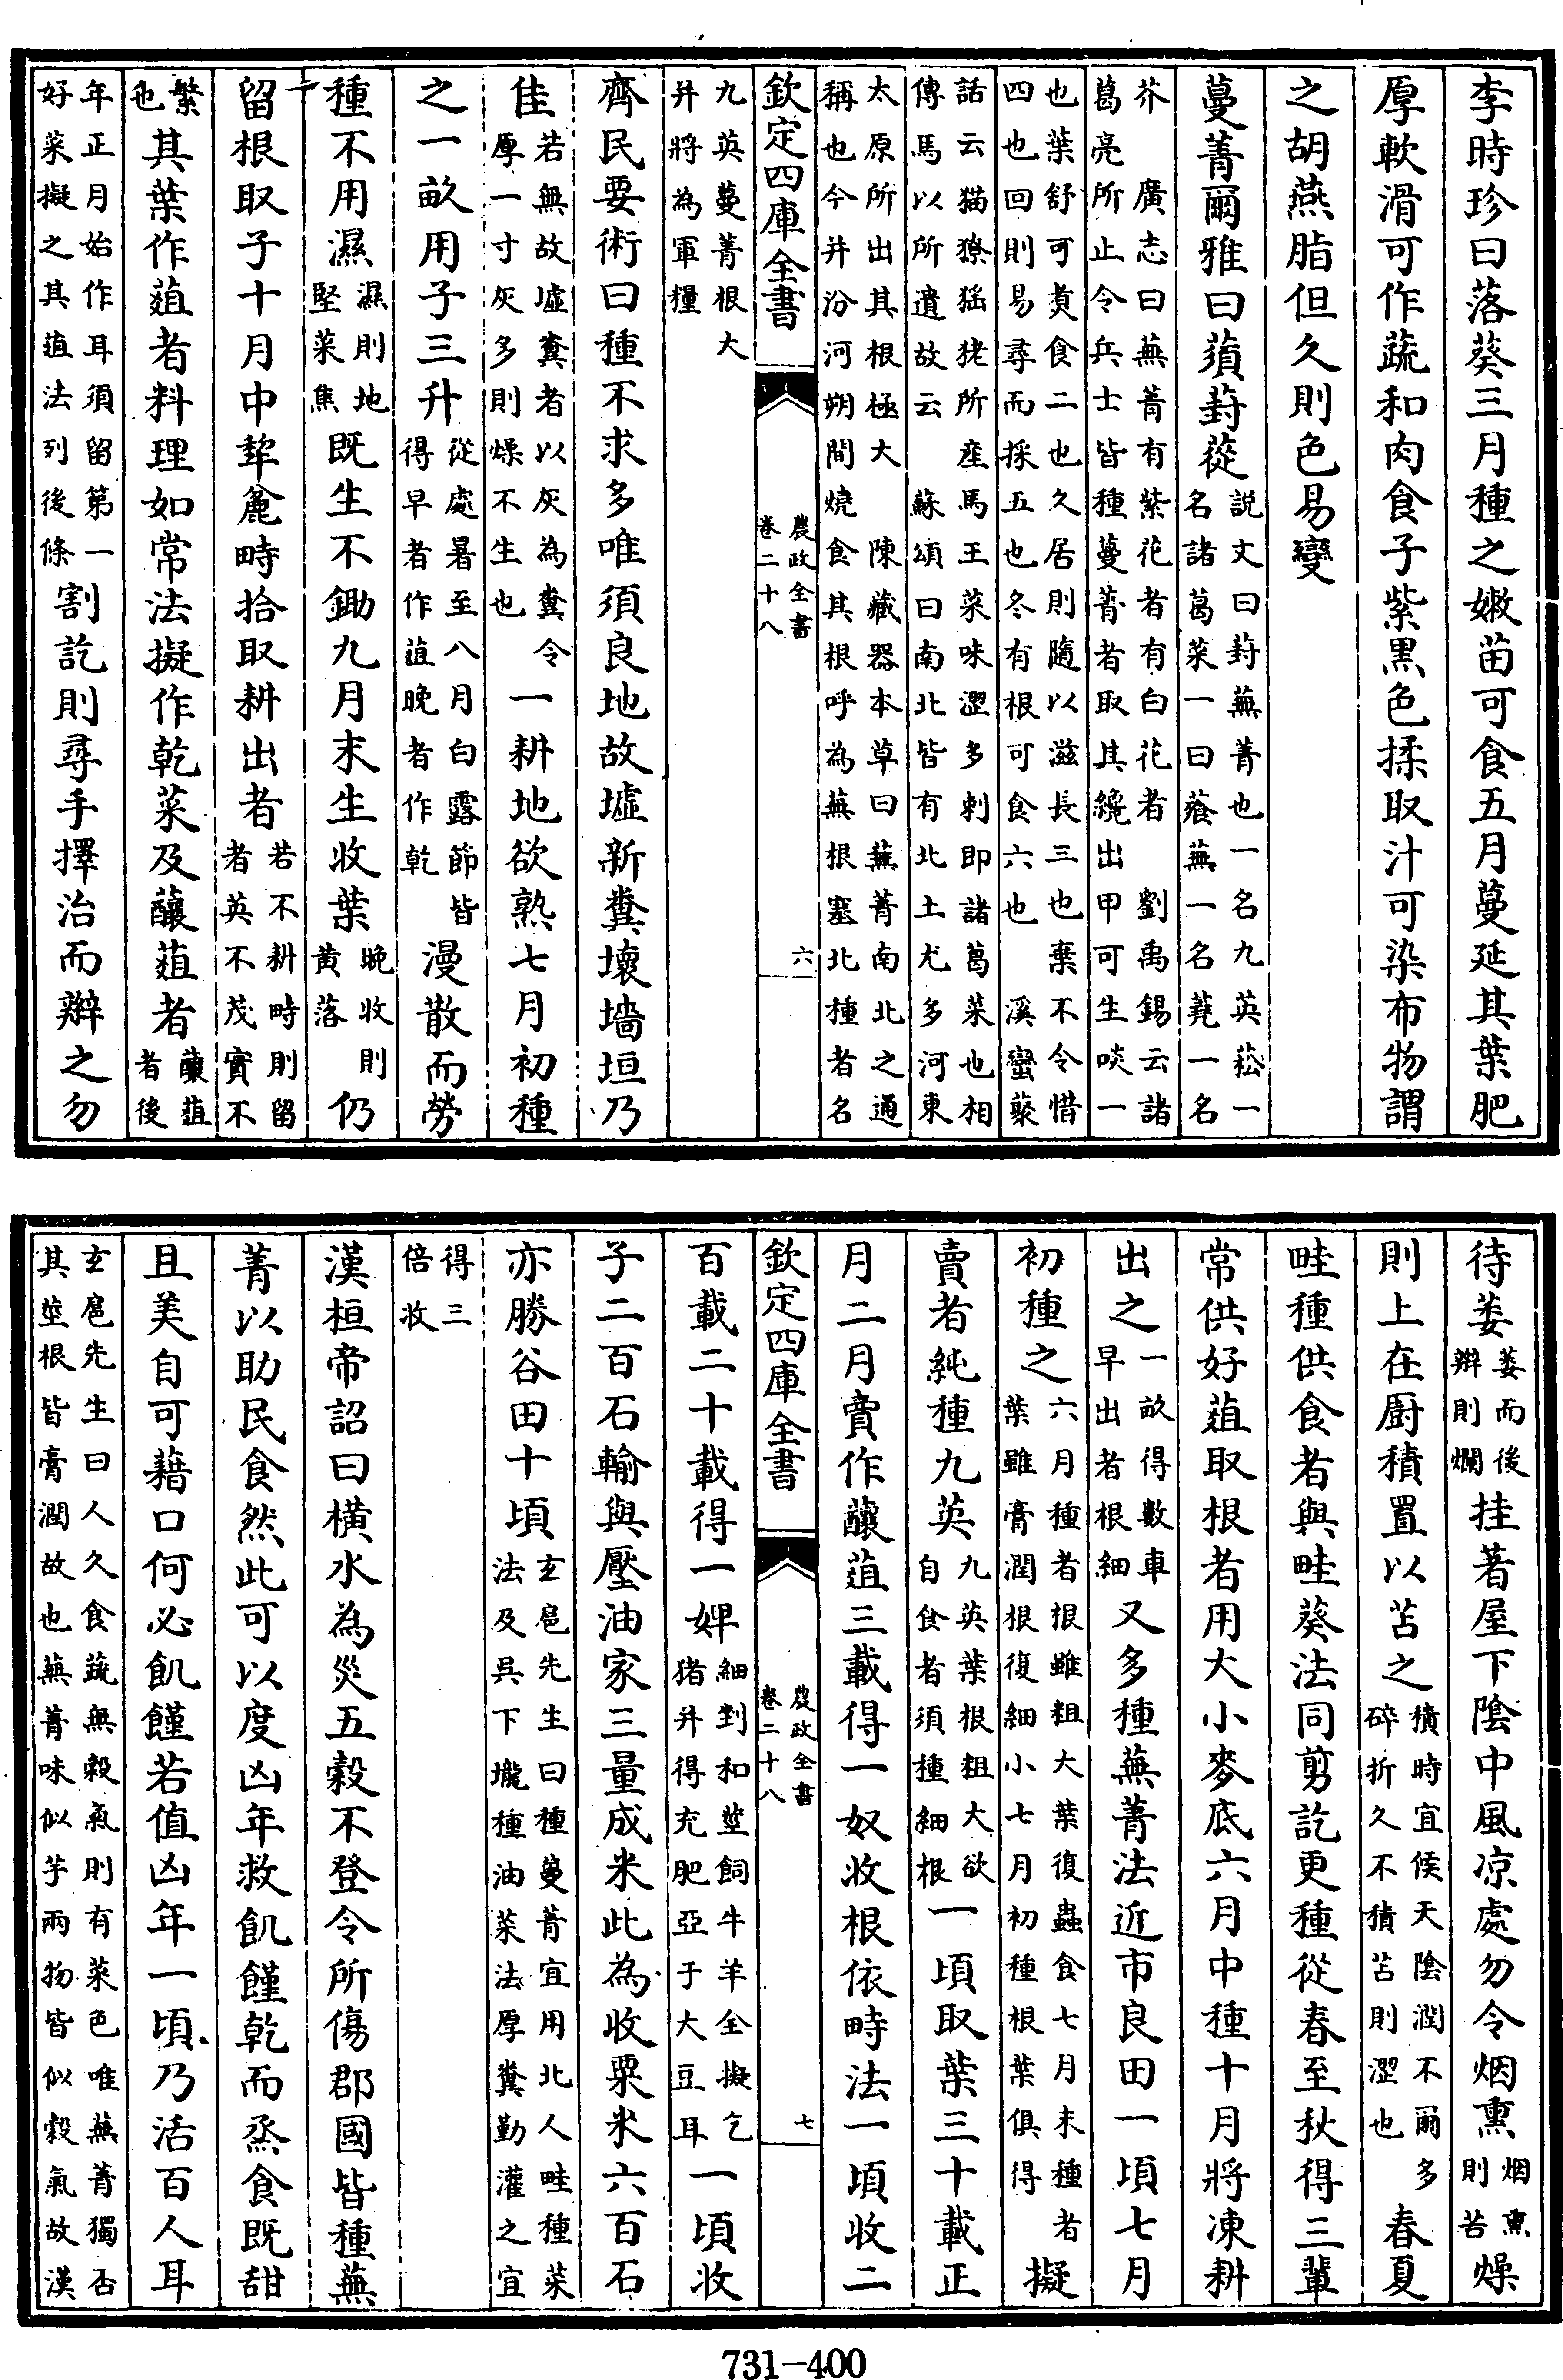 李時珍曰落葵三月種之嫩苗可食五月蔓延其葉肥
厚軟滑可作蔬和肉食子紫黑色揉取汁可染布物謂
之胡燕脂但久則色易變
蔓菁爾雅曰蕦葑蓯説文曰葑蕪菁也一名九英菘一名諸葛菜一曰蕵蕪一名蕘一名
芥　廣志曰蕪菁有紫花者有白花者　劉禹錫云諸葛亮所止令兵士皆種蔓菁者取其纔出甲可生啖一
也葉舒可煑食二也久居則隨以滋長三也棄不令惜四也回則易尋而採五也冬有根可食六也　溪蠻藂
話云猫獠猺狫所產馬王菜味澀多刺即諸葛菜也相傳馬以所遺故云　蘇頌曰南北皆有北土尤多河東
太原所出其根極大　陳藏器本草曰蕪菁南北之通稱也今并汾河朔間燒食其根呼為蕪根塞北種者名
欽定四庫全書　農政全書卷二十八　六
九英蔓菁根大并將為軍糧
齊民要術曰種不求多唯須良地故墟新糞壞墻垣乃
佳若無故墟糞者以灰為糞令厚一寸灰多則燥不生也一耕地欲熟七月初種
之一畝用子三升從處暑至八月白露節皆得早者作葅晚者作乾漫散而勞
種不用濕濕則地堅菜焦既生不鋤九月末生收葉晚收則黄落仍
留根取子十月中犂麄畤拾取耕出者若不耕畤則留者英不茂實不
繁也其葉作葅者料理如常法擬作乾菜及釀葅者釀葅者後
年正月始作耳須留第一好菜擬之其葅法列後條割訖則尋手擇治而辮之勿
待萎萎而後辮則爛挂著屋下陰中風凉處勿令烟熏烟熏則苦燥
則上在厨積置以苫之積時宜侯天陰潤不爾多碎折久不積苫則澀也春夏
畦種供食者與畦葵法同剪訖更種從春至秋得三輩
常供好葅取根者用大小麥底六月中種十月將凍耕
出之一畝得數車早出者根細又多種蕪菁法近市良田一頃七月
初種之六月種者根雖粗大葉復蟲食七月末種者葉雖膏潤根復細小七月初種根葉俱得擬
賣者純種九英九英葉根粗大欲自食者須種細根一頃取葉三十載正
月二月賣作釀葅三載得一奴收根依畤法一頃收二
欽定四庫全書　農政全書卷二十八　七
百載二十載得一婢細剉和莖飼牛羊全擬乞猪并得充肥亞于大豆耳一頃收
子二百石輸與壓油家三量成米此為收粟米六百石
亦勝谷田十頃玄扈先生曰種蔓菁宜用北人畦種菜法及呉下壠種油菜法厚糞勤灌之宜
得三倍收
漢桓帝詔曰橫水為災五穀不登令所傷郡國皆種蕪
菁以助民食然此可以度凶年救飢饉乾而烝食既甜
且美自可藉口何必飢饉若值凶年一頃乃活百人耳
玄扈先生曰人久食蔬無穀氣則有菜色唯蕪菁獨否其莖根皆膏潤故也蕪菁味似芋兩物皆似穀氣故漢
731-400